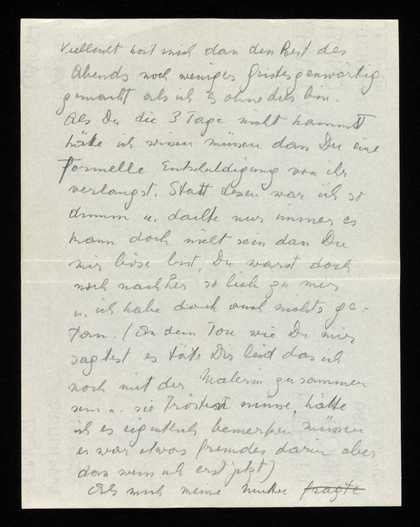 Vielleicht hat mich dan den Rest des
Abends noch weniger geistesgegenwärtig
gemacht als ich es ohne dies bin.
Als Du die 3 Tage nicht kammst
hätte ich wissen müssen dan Du eine
formelle Entschuldigung von ihr
verlangst. Statt dessen war ich so
dumm u. dachte nur immer es
kann doch nicht sein dan Du
mir böse bist, Du warst doch
noch nachher so lieb zu mir
u. ich habe doch auch nichts ge-
tan. (An dem Ton wie Du mir
sagtest es täte Dir leid das ich
noch mit der Malerin zusammen
sein u. sie trösten müsse, hätte
ich es eigentlich bemerken müssen
es war etwas fremdes darin aber
dan weis ich erst jetzt)
Als mich meine Mutter fragte